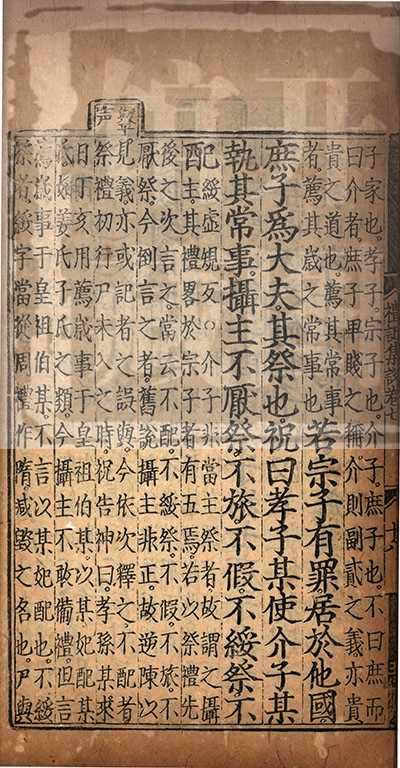 子家也。孝子宗子也。介子庶子也。不曰庶而
曰介者。庶子卑賤之稱。介則副貳之義。亦貴
貴之道也。薦其常事
者。薦其歲之常事也
若宗子有罪。居於他國
庶子爲大夫。其祭也。祝曰孝子某使介子某
執其常事。攝主不厭祭。不旅。不假。不綏祭。不
配
綏虛規反○介子非當主祭者。故謂之攝
主。其禮畧於宗子者有五焉。若以祭禮先
後之次言之。當云不配。不綏祭。不假。不旅。不
厭祭。今倒言之者。舊說攝主非正。故逆陳以
見義。亦或記者之誤與。今依次釋之。不配者
祭禮初行。尸未入之時。祝告神曰。孝孫某來
日丁亥。用薦歲事于皇祖伯某。以某妃配某
氏。如姜氏子氏之類。今攝主不敢備禮。但言
薦歲事于皇祖伯某。不言以某妃配也。不綏
祭者。綏字當從周禮作隋。減毀之名也。尸與
禮記集說卷七